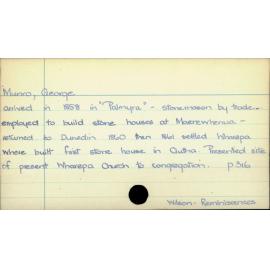 Munro, George
arrived in 1858 in "Palmyra" - stonemason by trade -
employed to build stone houses at Maerewhenua -
returned to Dunedin 1860 then 1861 settled Wharepa
where built first stone house in Clutha. Presented site
of present Wharepa Church to congregation. p 316
Wilson - Reminiscences